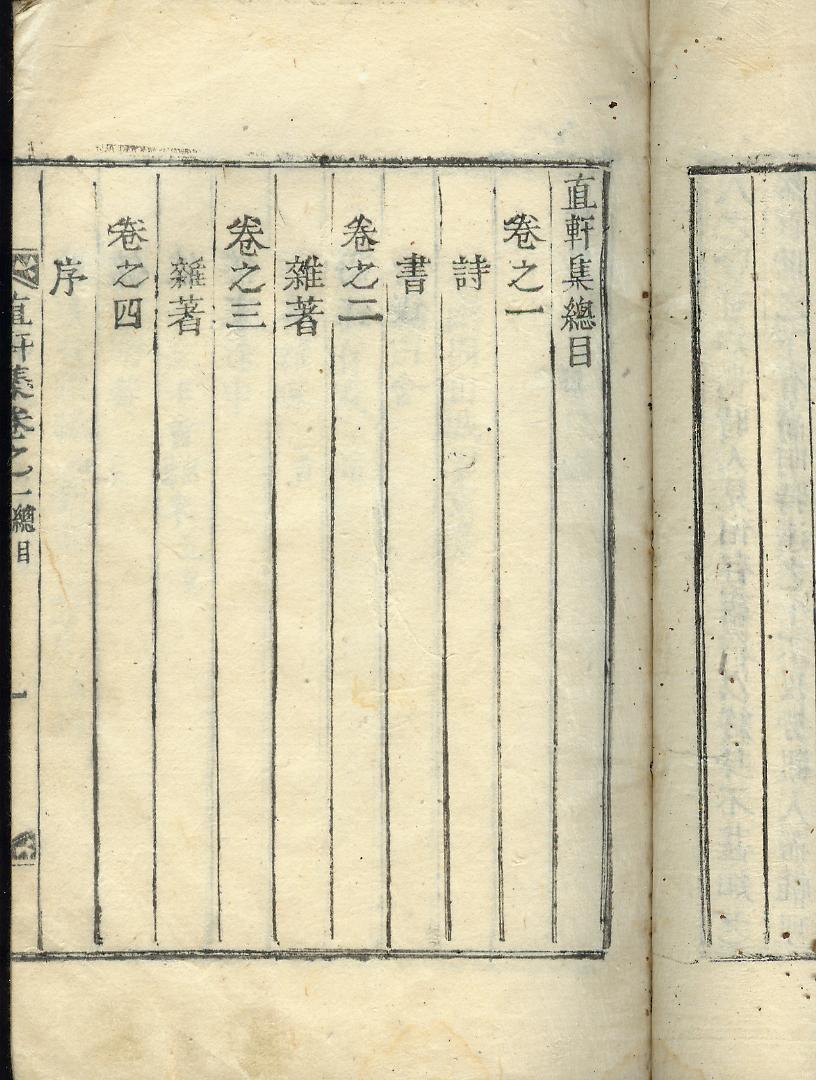 直軒集總目
卷之一
詩
書
卷之二
雜著
卷之三
雜著
卷之四
序
直軒集卷之一 總目 一